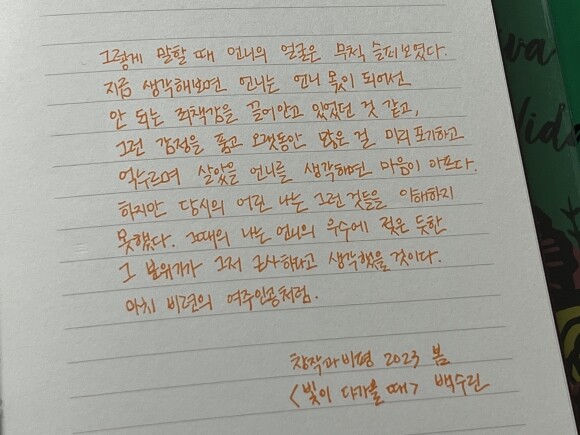 그렇게 말할 때 언니의 얼굴은 무척 슬퍼보였다.
지금 생각해보면 언니는 언니 몫이 되어선
안 되는 죄책감을 끌어안고 있었던 것 같고,
그런 감정을 품고 오랫동안 많은 걸 미리 포기하고
억누르며 살았을 언니를 생각하면 마음이 아프다.
하지만 당시의 어린 나는 그런 것들을 이해하지
못했다. 그때의 나는 언니의 우수에 젖은 듯한
그 분위기가 그저 근사하다고 생각했을 것이다.
마치 비련의 여주인공처럼.
창작과비평 2023 봄
<빛이 다가올 때> 백수린
va
Vida